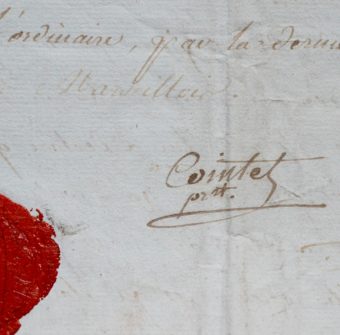 l'ordinaire, par la derni
Marseillois.
Cointet
prtt.